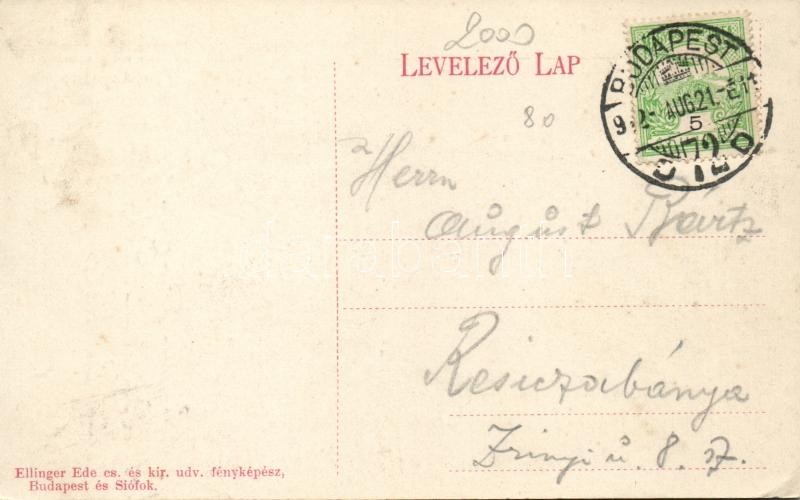 2000
LEVELEZŐ LAP
80
BUDAPEST
AUG.21.
5
72
Herrn
August Bartz
darabanth
Resiczabánya
Zrinyi u. 8. sz.
Ellinger Ede cs. és kir. udv. fényképész,
Budapest és Siófok.